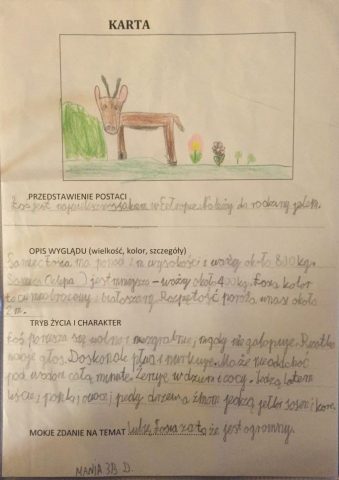 KARTA
PRZEDSTAWIENIE POSTACI
Łoś jest największym ssakiem w Europie. Należy do rodziny jeleni.
OPIS WYGLĄDU (wielkość, kolor, szczegóły)
Samiec łosia ma ponad 2 m wysokości i waży około 800 kg.
Samica ( ) jest mniejsza - waży około 400 kg. Łosia kolor
to ciemnobrązowy z białoszarą. Rozpiętość poroża wnosi około
2 m.
TRYB ŻYCIA I CHARAKTER
Łoś porusza się wolno i niezgrabnie, nigdy nie galopuje. Rzadko
wydaje głos. Doskonale pływa i nurkuje. Może nie oddychać
pod wodą całą minutę. Żeruje w dzień i w nocy. Jedzą latem
liście i pąki, owoce, pędy drzew a zimą jedzą jełki sosen i korę.
MOKJE ZDANIE NA TEMAT Lubię łosia za to że jest ogromny.
MANIA 3B D.